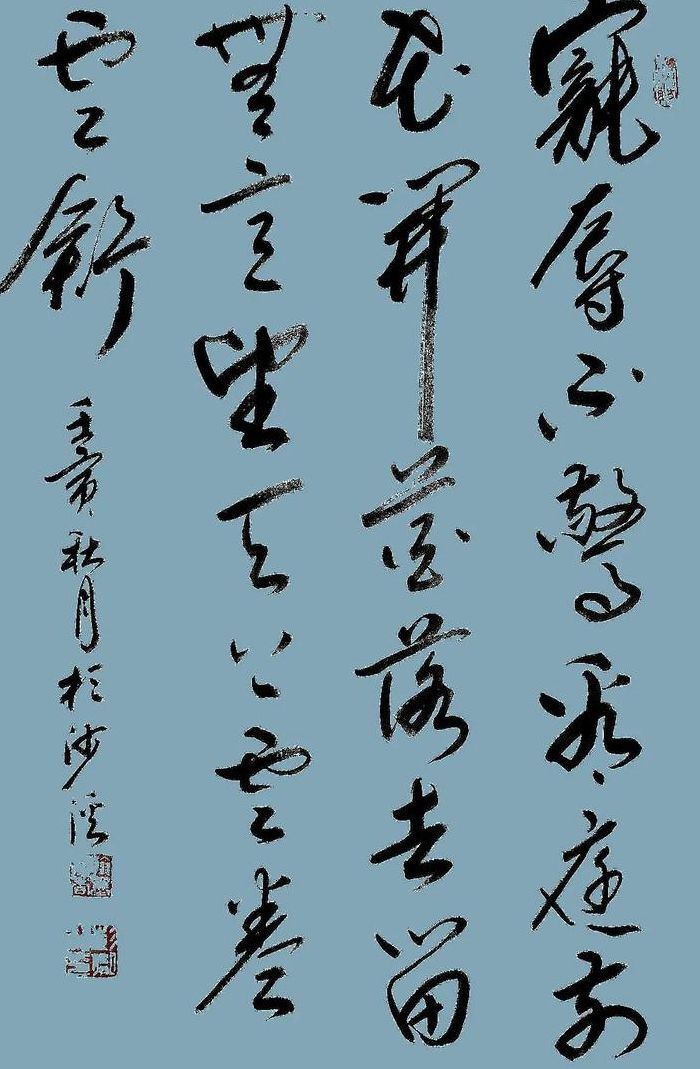 寵辱不驚看庭前
花開花落去留
無意望天上雲卷
雲舒
壬寅秋月於沙溪